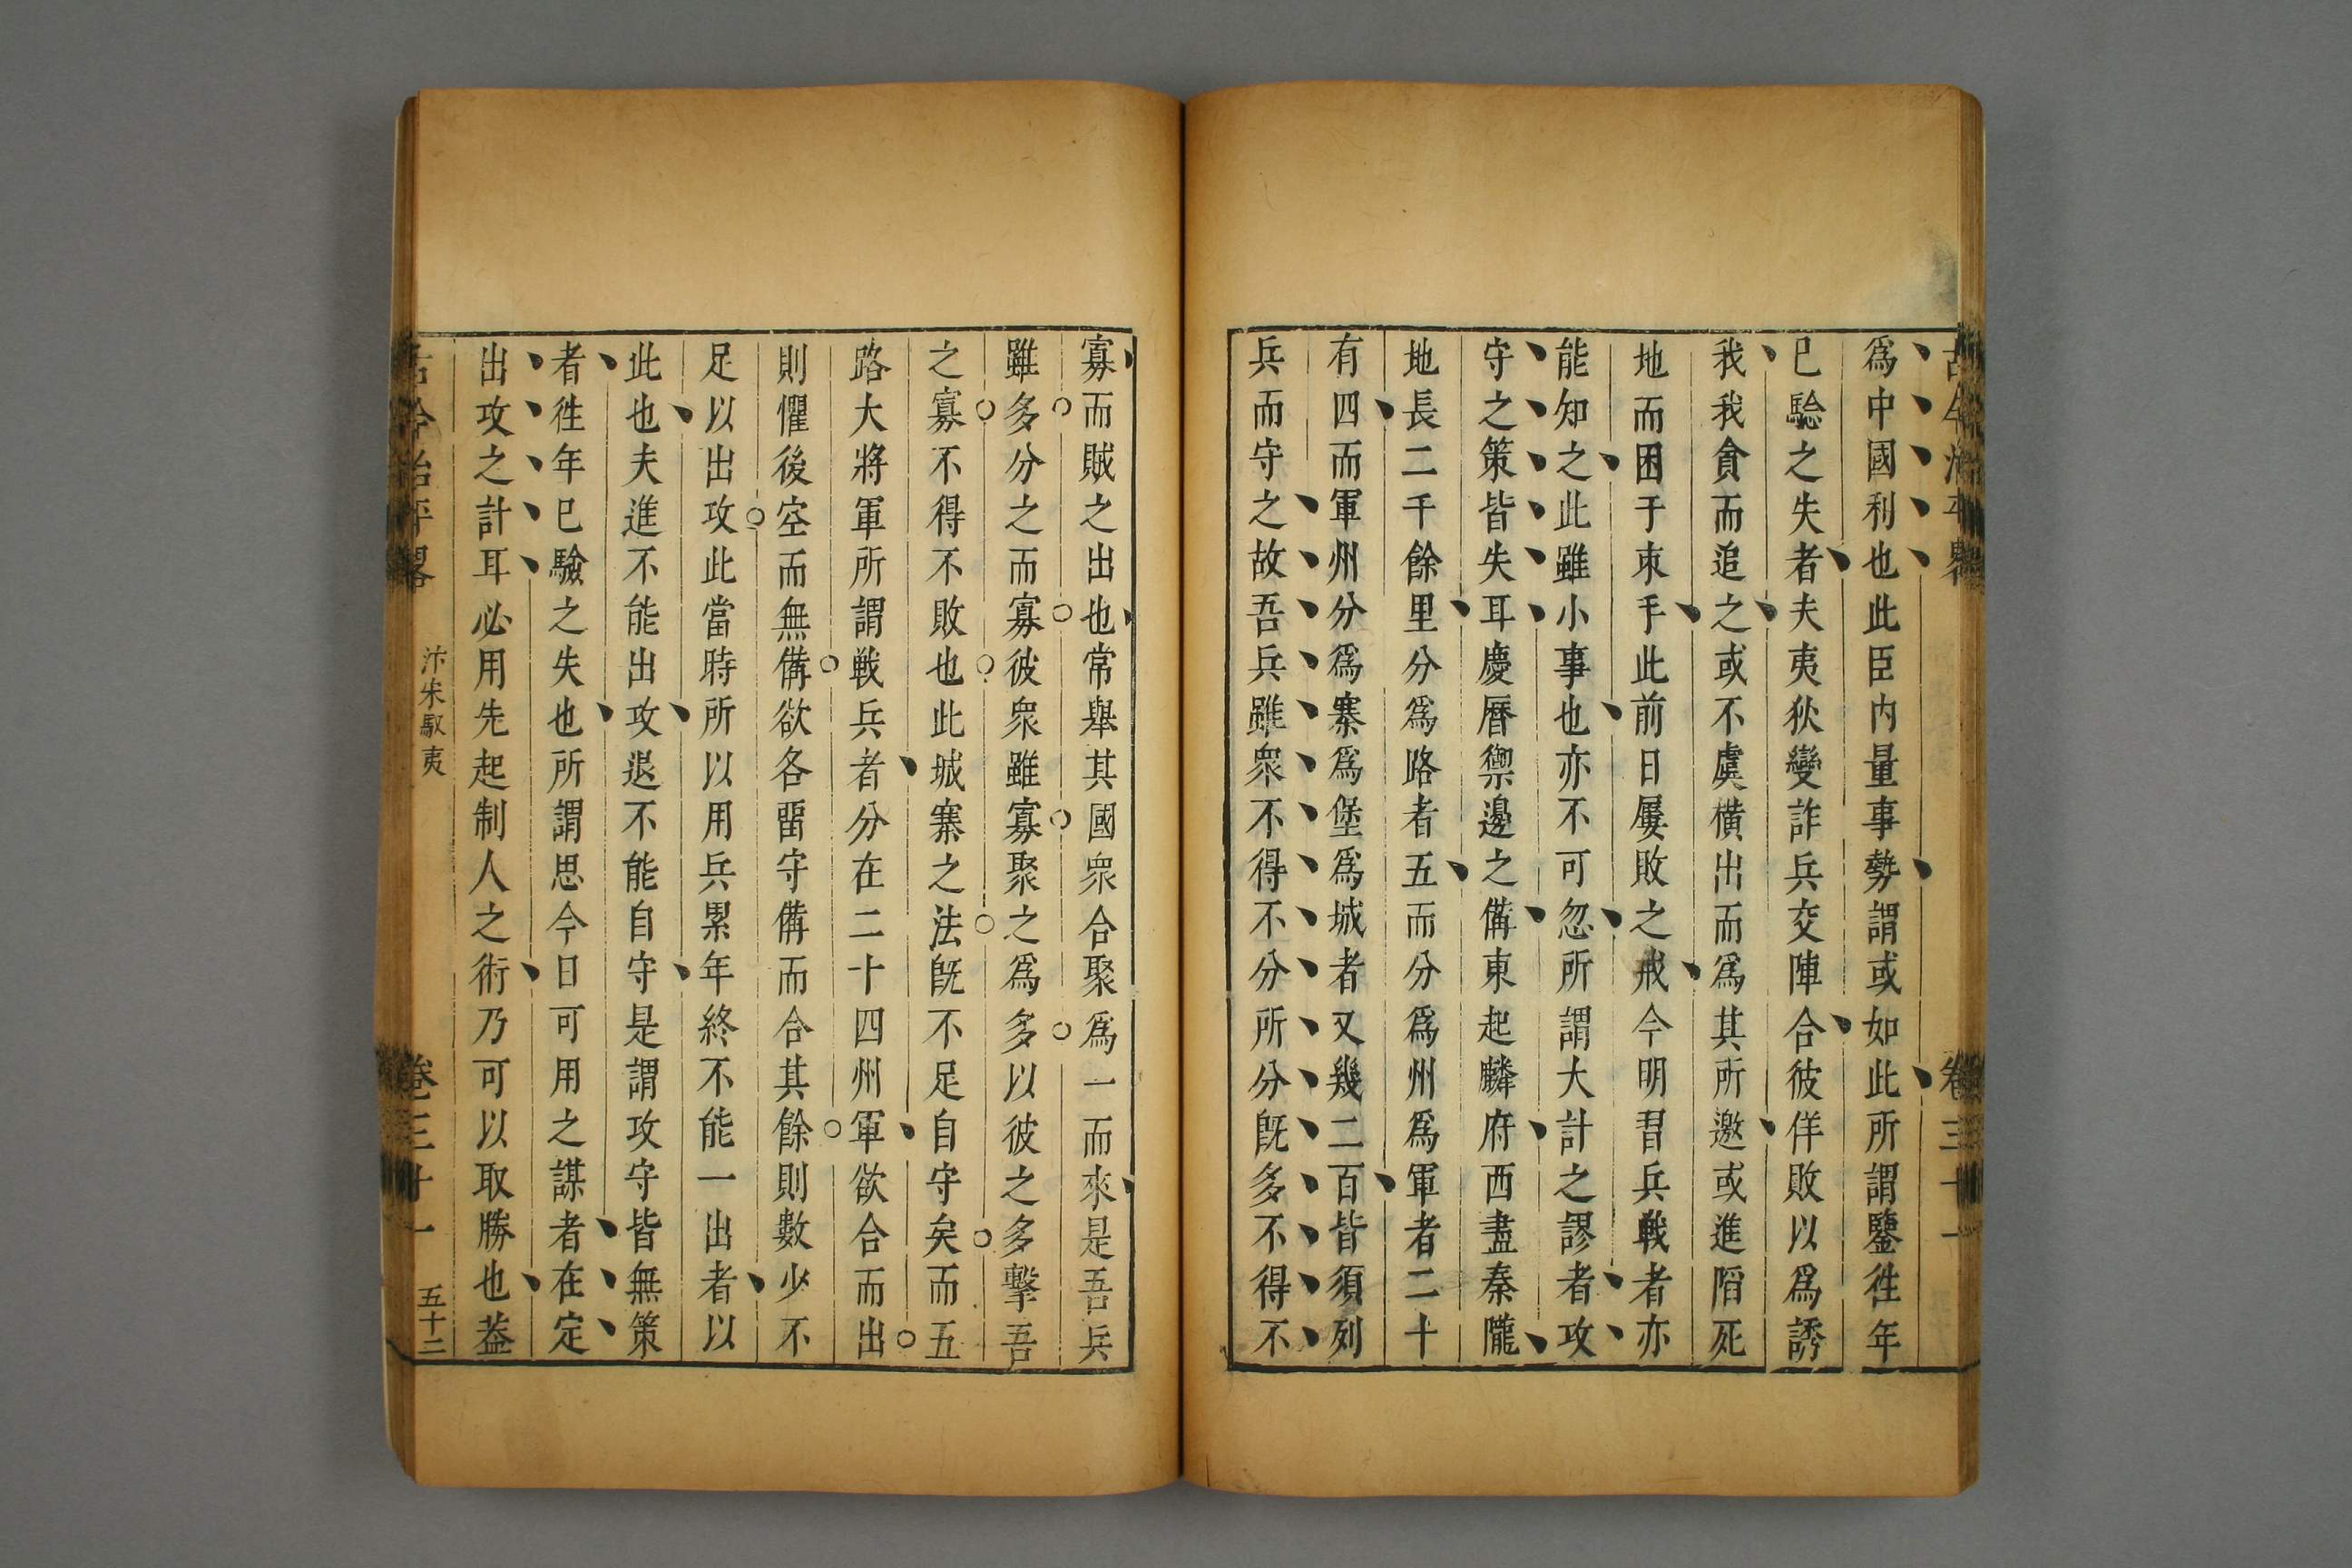 為中國利也此臣内量事勢謂或如此所謂鑒徃年
已驗之失者夫夷狄變詐兵交陣合彼佯敗以為誘
我我貪而追之或不虞橫出而為其所邀或進陷死
地而困于束手此前日屢敗之戒今明習兵戰者亦
能知之此雖小事也亦不可忽所謂大計之謬者攻
守之策皆失耳慶曆禦邊之備東起麟府西盡秦隴
地長二千餘里分為路者五而分為州為軍者二十
有四而軍州分為寨為堡為城者又幾二百皆須列
兵而守之故吾兵雖衆不得不分所分既多不得不
寡而賊之出也常舉其國衆合聚為一而來是吾兵
雖多分之而寡彼衆雖寡聚之為多以彼之多擊吾
之寡不得不敗也此城寨之法既不足自守矣而五
路大將軍所謂戰兵者分在二十四州軍欲合而出
則懼後空而無備欲各留守備而合其餘則數少不
足以出攻此當時所以用兵累年終不能一出者以
此也夫進不能出攻退不能自守是謂攻守皆無策
者徃年已驗之失也所謂思今日可用之謀者在定
出攻之計耳必用先起制人之術乃可以取勝也葢
古今治平畧 汴宋馭夷 卷三十一 五十二